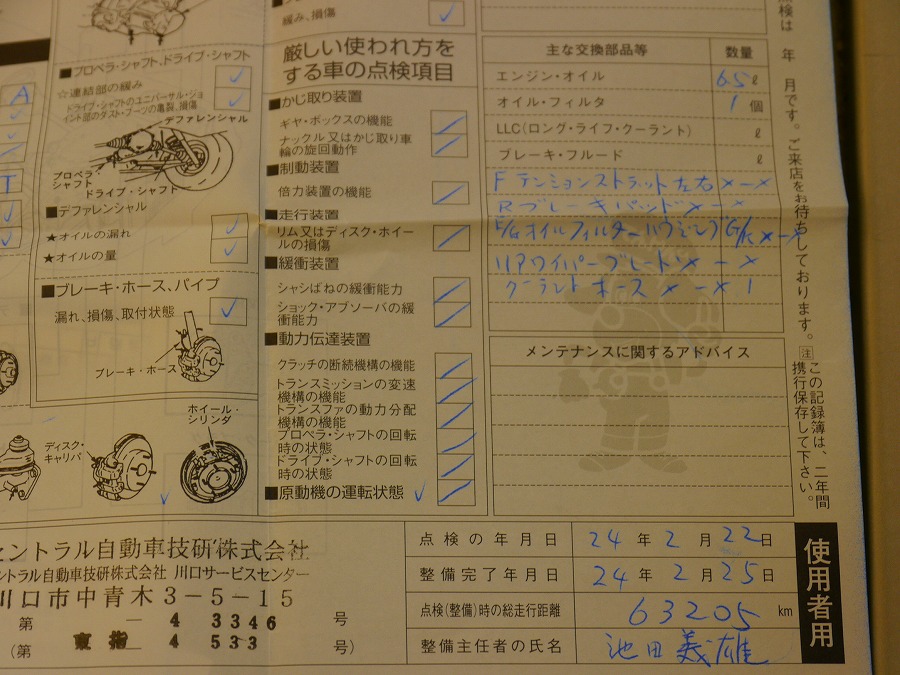 緩み、損傷
■プロペラ・シャフト、ドライブ・シャフト
☆連結部の緩み
ドライブ・シャフトのユニバーサル・ジョ
イント部のダスト・ブーツの亀裂、損傷
デファレンシャル
プロペラ
シャフト
ドライブ・シャフト
■デファレンシャル
★オイルの漏れ
★オイルの量
■ブレーキ・ホース、パイプ
漏れ、損傷、取付状態
ブレーキ・ホース
ディスク・
キャリパ
ホイール・
シリンダ
A
T
厳しい使われ方を
する車の点検項目
■かじ取り装置
ギヤ・ボックスの機能
ナックル又はかじ取り車
輪の旋回動作
■制動装置
倍力装置の機能
■走行装置
リム又はディスク・ホイー
ルの損傷
■緩衝装置
シャシばねの緩衝能力
ショック・アブソーバの緩
衝能力
■動力伝達装置
クラッチの断続機構の機能
トランスミッションの変速
機構の機能
トランスファの動力分配
機構の機能
プロペラ・シャフトの回転
時の状態
ドライブ・シャフトの回転
時の状態
■原動機の運転状態
主な交換部品等 数量
エンジン・オイル 6.5 ℓ
オイル・フィルタ 1 個
LLC(ロング・ライフ・クーラント) ℓ
ブレーキ・フルード ℓ
F テンションストラット左右 × — ×
Rブレーキパッド × — ×
E/Gオイルフィルターハウジング G/K × — ×
リアワイパーブレード × — ×
クーラント ホース × — × 1
メンテナンスに関するアドバイス
点検は 年 月です。ご来店をお待ちしております。
注 この記録簿は、二年間
携行保存して下さい。
セントラル自動車技研株式会社
ントラル自動車技研株式会社 川口サービスセンター
川口市中青木3-5-15
第 — 4 3346 号
(第 東指 — 4 533 号)
点検の年月日 24 年 2 月 22 日
整備完了年月日 24 年 2 月 25 日
点検(整備)時の総走行距離 63205 km
整備主任者の氏名 池田義雄
使用者用